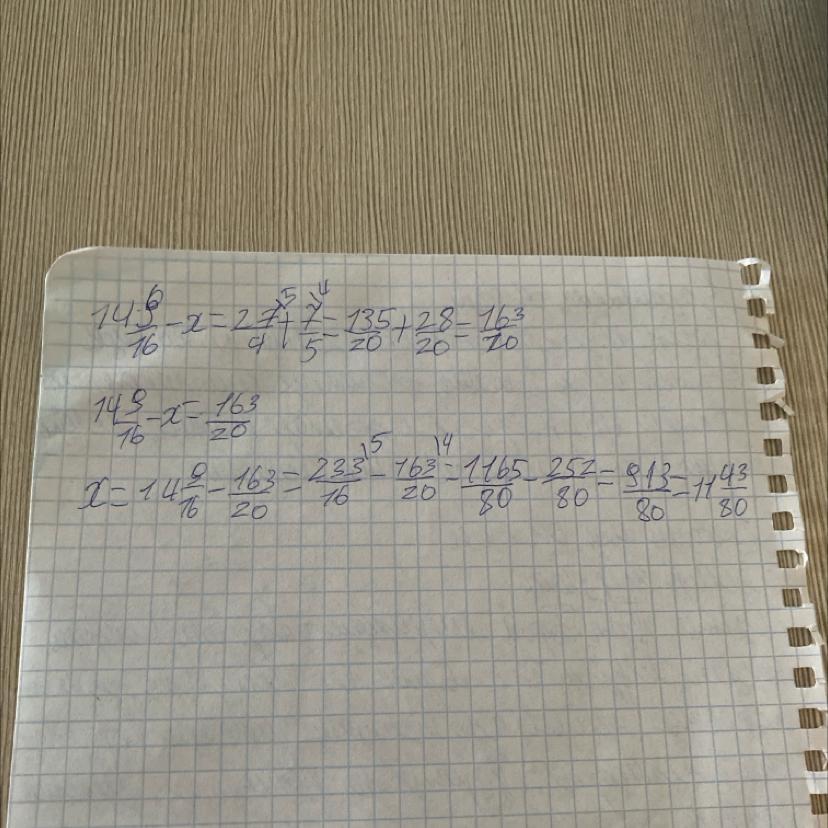 14 9/16 - x = 27/4 \5 + 7/5 \4 = 135/20 + 28/20 = 163/20
14 9/16 - x = 163/20
x = 14 9/16 - 163/20 = 233/16 \5 - 163/20 \4 = 1165/80 - 252/80 = 913/80 = 11 43/80